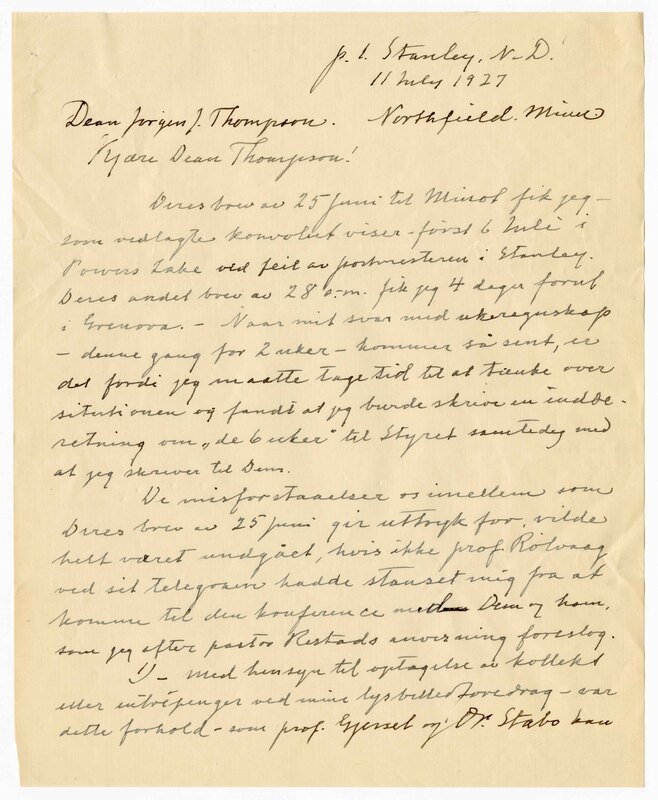 p. t. Stanley, N. D.
11 July 1927
Dean Jörgen J. Thompson. Northfield. Minn
Kjære Dean Thompson!
Deres brev av 25 juni til Minot fik jeg –
som vedlagte konvolut viser – först 6 Juli i
Powers Lake ved feil av postmesteren i Stanley.
Deres andet brev av 28 a.m. fik jeg 4 dager forut
i Grenora. – Naar mit svar med ukeregnskap
– denne gang for 2 uker – kommer så sent, er
det fordi jeg maatte tage tid til at tænke over
situtionen og fandt at jeg burde skrive en indbe-
retning om „de 6 uker" til Styret samtedig med
at jeg skriver til Dem.
De misforstaaelser os imellem som
Deres brev av 25 juni gir uttryk for, vilde
helt været undgået, hvis ikke prof. Rölvaag
ved sit telegram hadde stanset mig fra at
komme til den konference med Dem og ham,
som jeg efter pastor Restads anvisning foreslog.
1) – Med hensyn til optagelse av kollekt
eller intræpenger ved mine lysbilledforedrag – var
dette forhold – som prof. Gjerset og Dr. Stabo kan